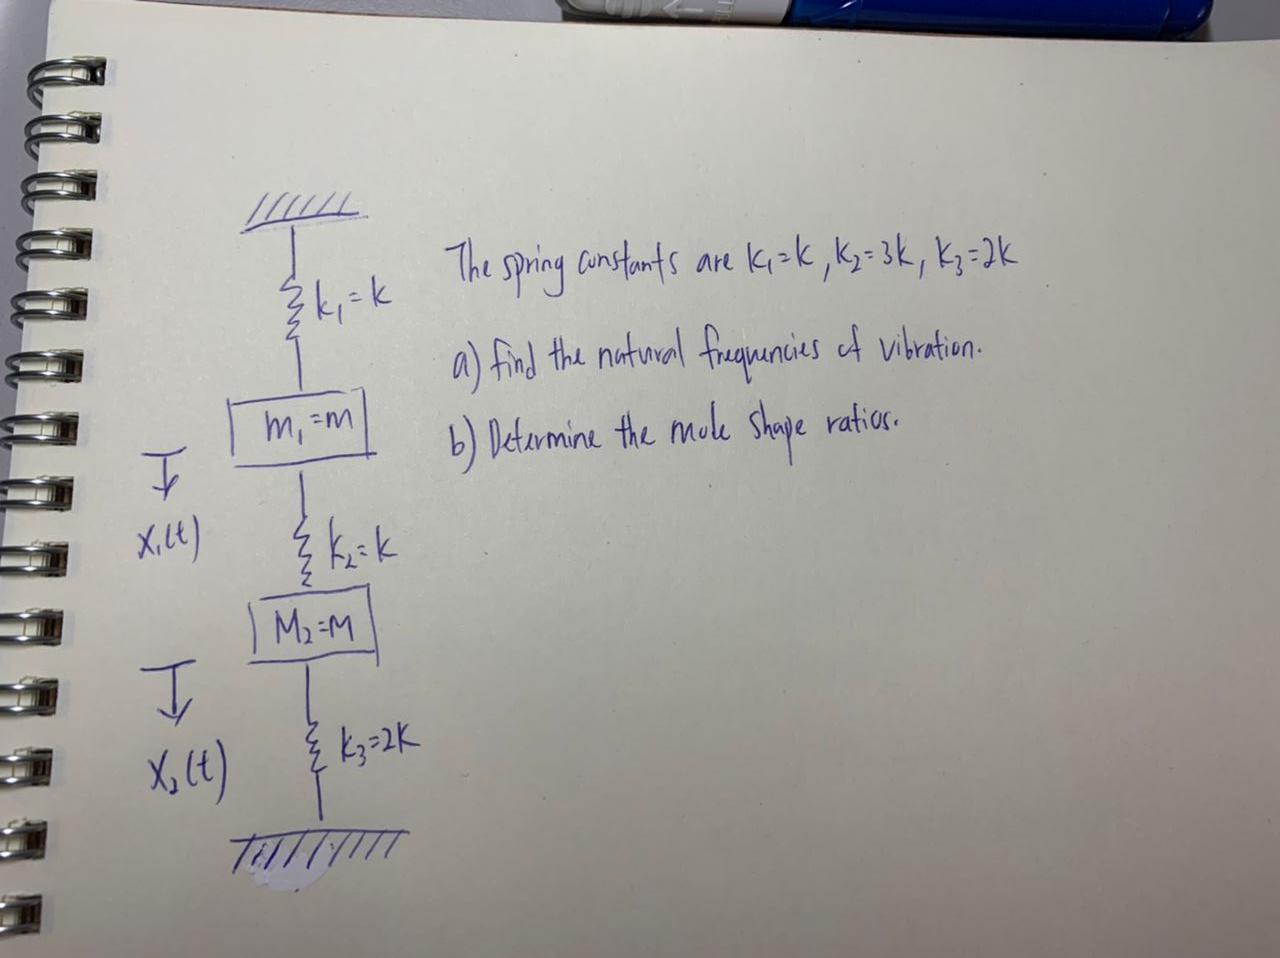 k₁=k
m₁=m
x₁(t)
k₂=k
M₂=M
x₂(t)
k₃=2k
The spring constants are k₁=k, k₂=3k, k₃=2k
a) find the natural frequencies of vibration.
b) Determine the mode shape ratios.